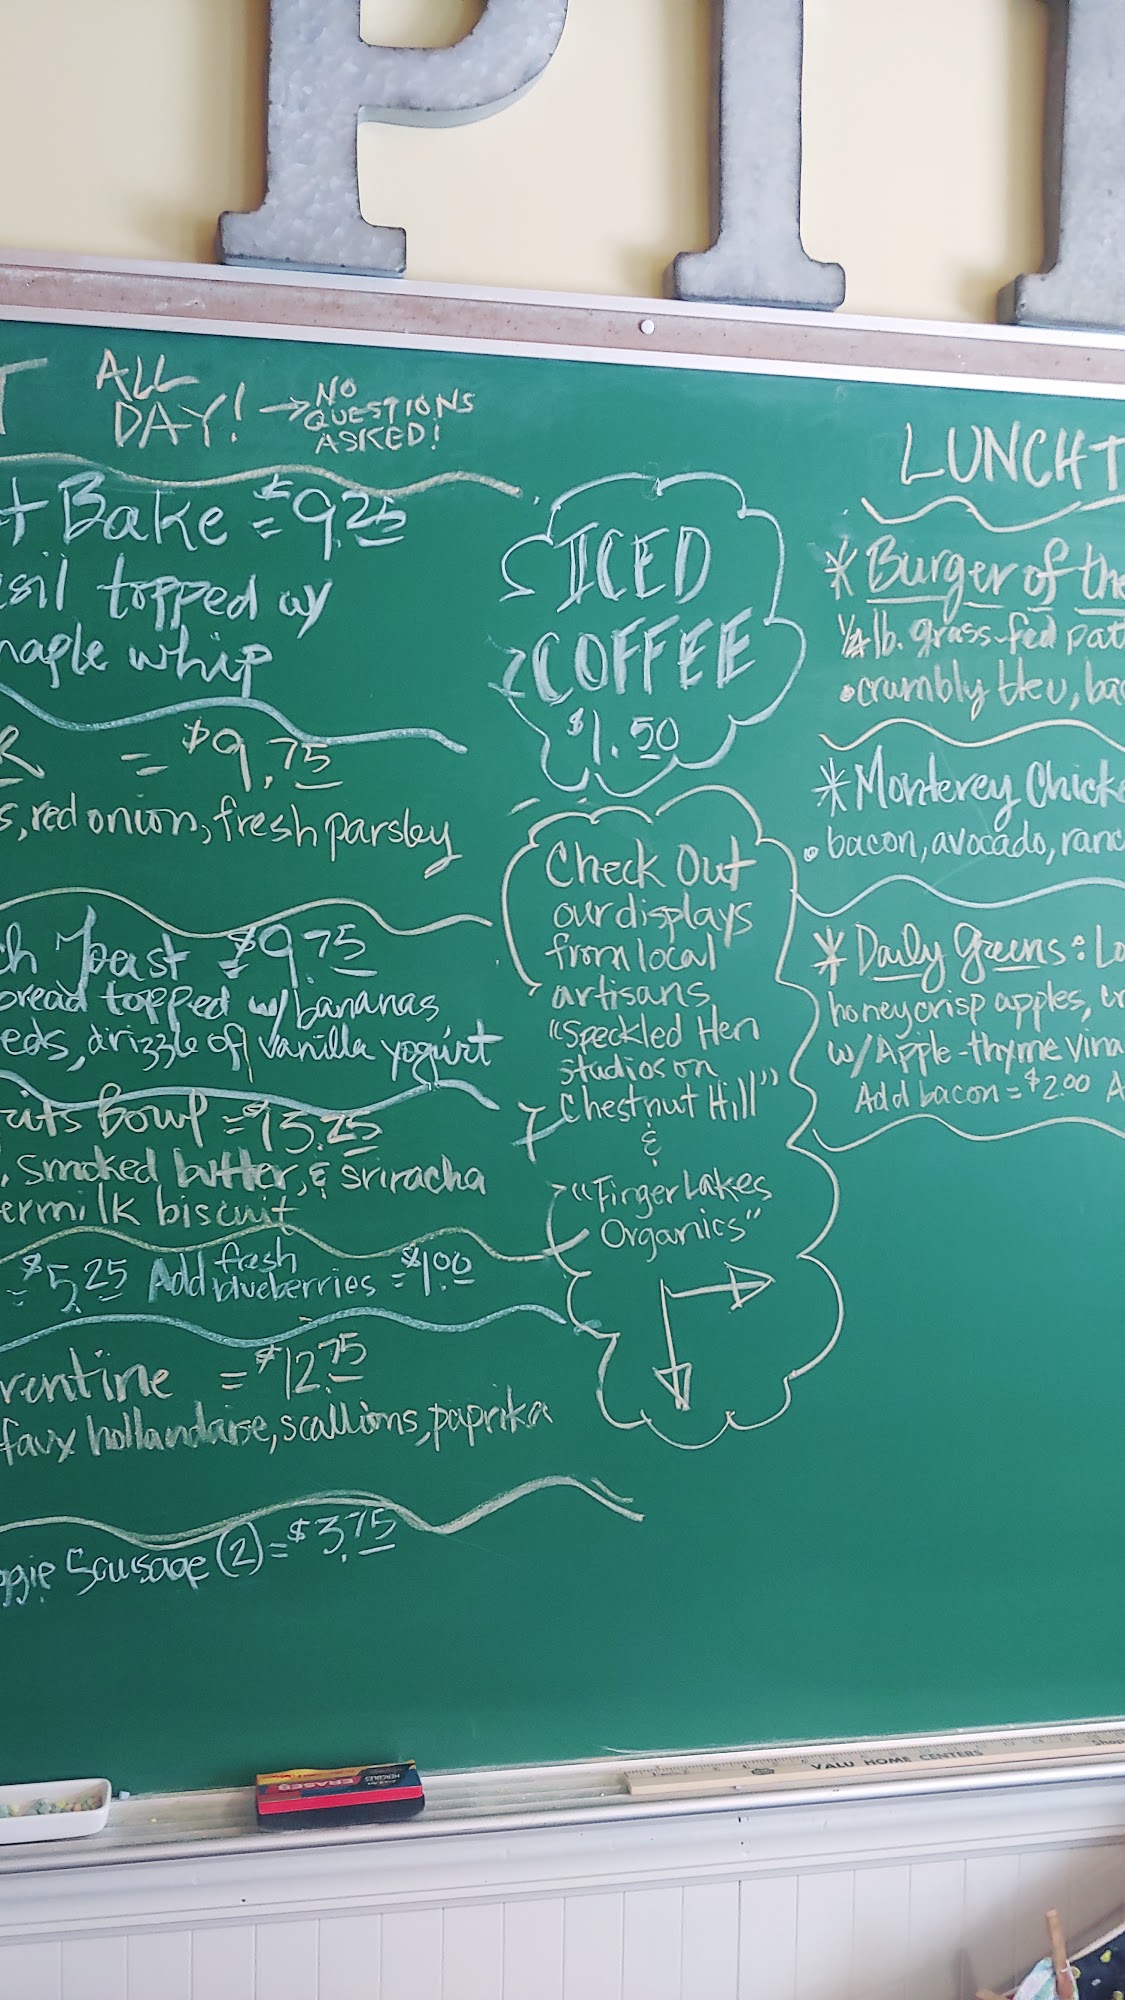 PI
T ALL
DAY! → NO
QUESTIONS
ASKED!
t Bake = $9.25
sil topped w/
maple whip
= $9.75
s, red onion, fresh parsley
ch Toast = $9.75
bread topped w/ bananas
eeds, drizzle of vanilla yogurt
rits Bowl = $13.25
, smoked butter, & sriracha
ermilk biscuit
= $5.25 Add fresh
blueberries = $1.00
rentine = $12.75
faux hollandaise, scallions, paprika
ggie Sausage (2) = $3.75
ICED
COFFEE
$1.50
Check Out
our displays
from local
artisans
"Speckled Hen
Studios on
Chestnut Hill"
&
"Finger Lakes
Organics"
LUNCHT
* Burger of the
1/4 lb. grass-fed pat
• crumbly bleu, bac
* Monterey Chicke
• bacon, avocado, ranc
* Daily Greens: Lo
honeycrisp apples, cr
w/ Apple-thyme vina
Add bacon = $2.00 A
HERCULES
ERASER
VALU HOME CENTERS
Shop